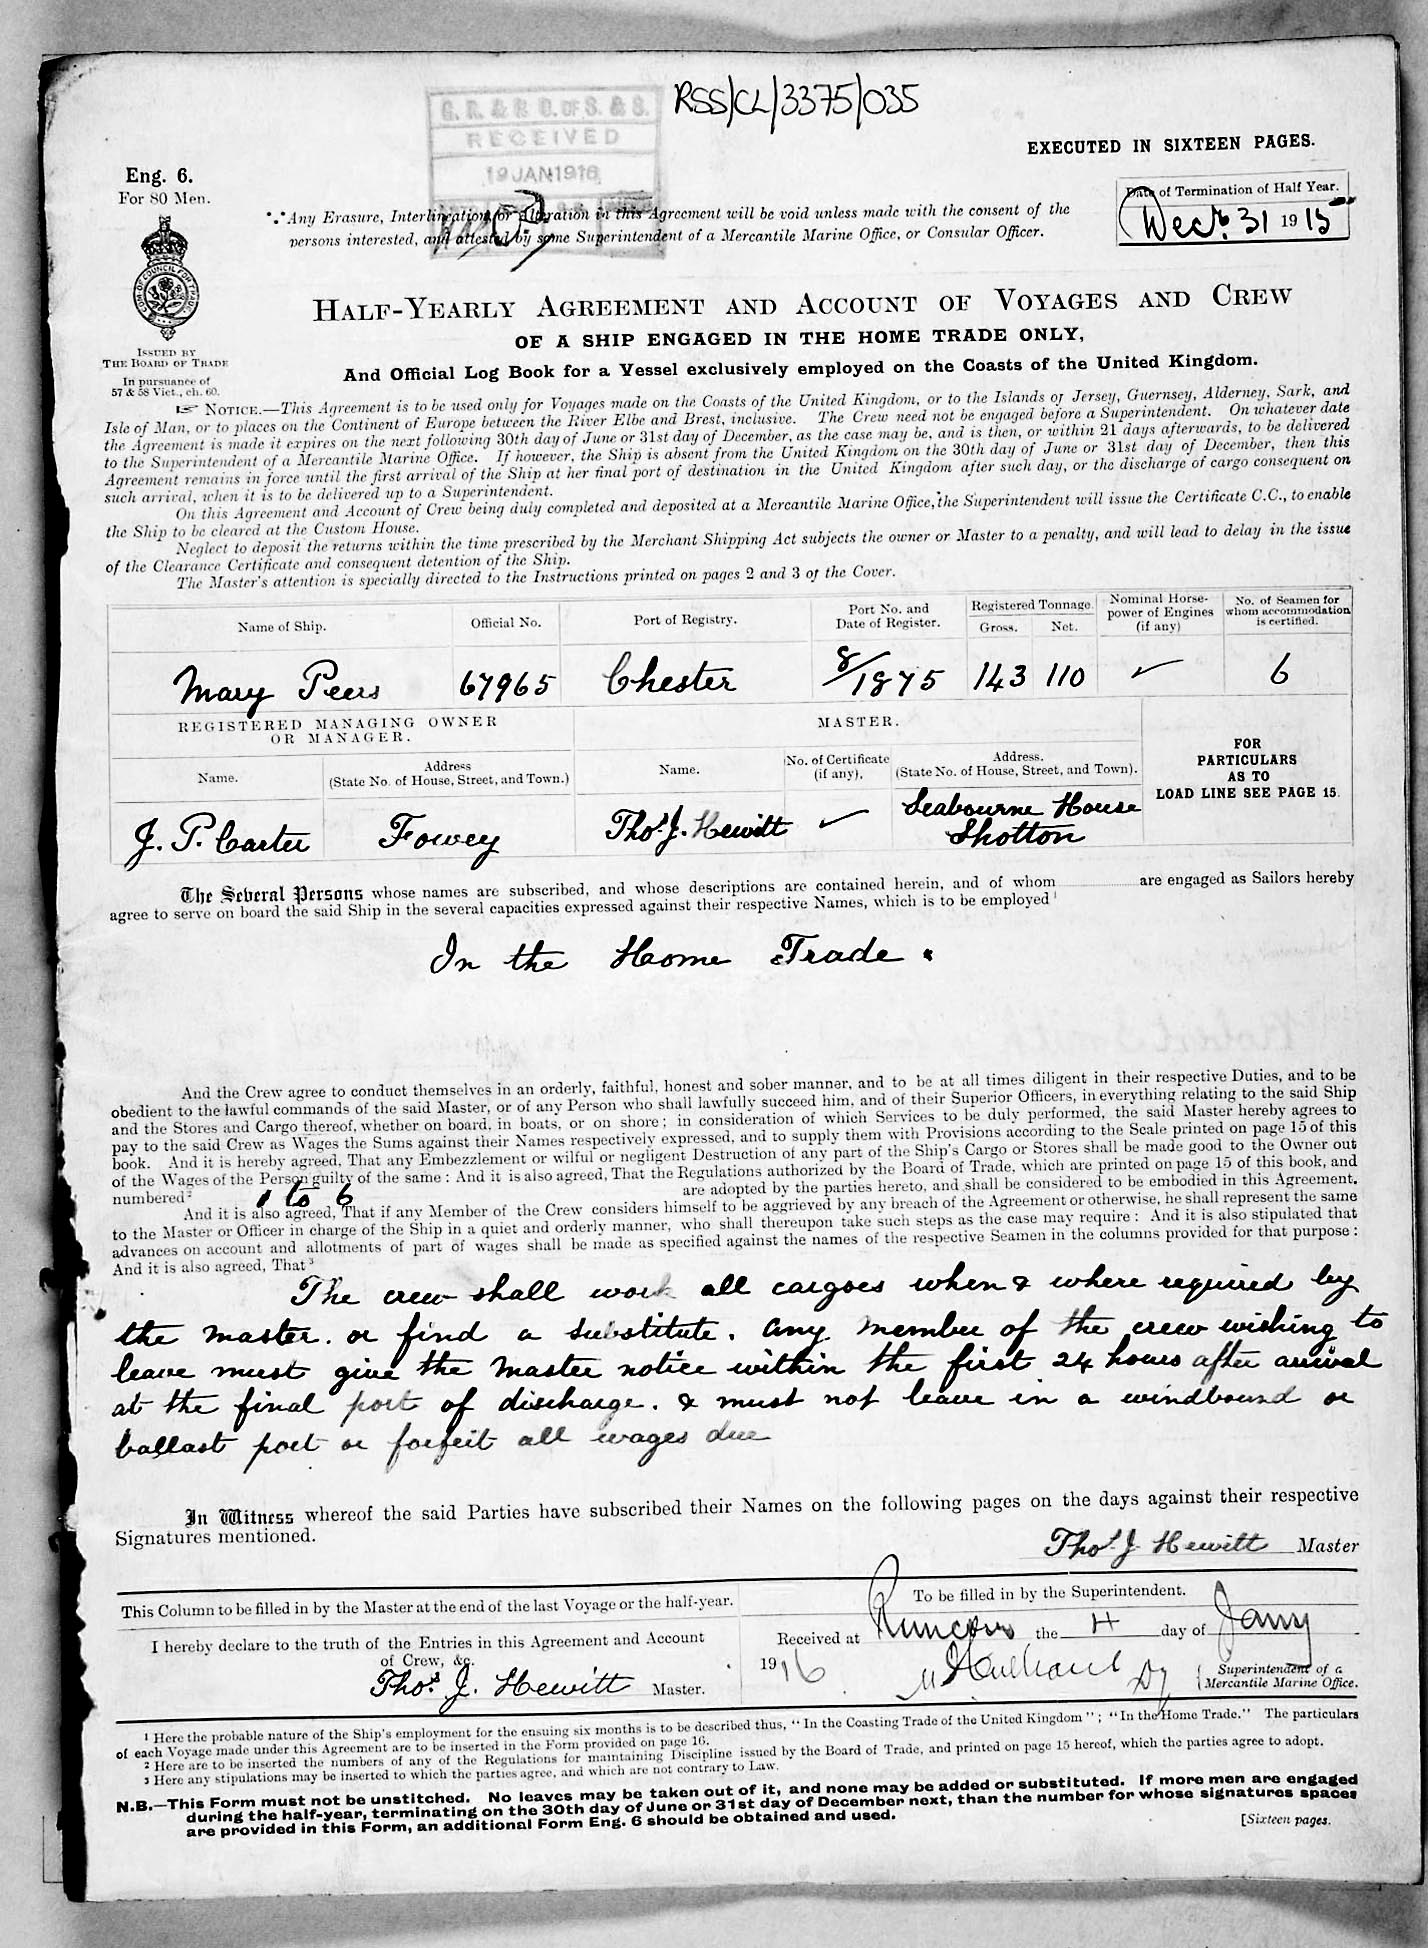 RSS/CL/3375/035
G. R. & R. O. OF S. & S.
RECEIVED
19 JAN 1916
EXECUTED IN SIXTEEN PAGES.
Eng. 6.
For 80 Men.
Date of Termination of Half Year.
Decr. 31 1915
Any Erasure, Interlineation, or Alteration in this Agreement will be void unless made with the consent of the
persons interested, and attested by some Superintendent of a Mercantile Marine Office, or Consular Officer.
ISSUED BY
THE BOARD OF TRADE
In pursuance of
57 & 58 Vict., ch. 60.
HALF-YEARLY AGREEMENT AND ACCOUNT OF VOYAGES AND CREW
OF A SHIP ENGAGED IN THE HOME TRADE ONLY,
And Official Log Book for a Vessel exclusively employed on the Coasts of the United Kingdom.
☞ NOTICE.—This Agreement is to be used only for Voyages made on the Coasts of the United Kingdom, or to the Islands of Jersey, Guernsey, Alderney, Sark, and
Isle of Man, or to places on the Continent of Europe between the River Elbe and Brest, inclusive. The Crew need not be engaged before a Superintendent. On whatever date
the Agreement is made it expires on the next following 30th day of June or 31st day of December, as the case may be, and is then, or within 21 days afterwards, to be delivered
to the Superintendent of a Mercantile Marine Office. If however, the Ship is absent from the United Kingdom on the 30th day of June or 31st day of December, then this
Agreement remains in force until the first arrival of the Ship at her final port of destination in the United Kingdom after such day, or the discharge of cargo consequent on
such arrival, when it is to be delivered up to a Superintendent.
On this Agreement and Account of Crew being duly completed and deposited at a Mercantile Marine Office, the Superintendent will issue the Certificate C.C., to enable
the Ship to be cleared at the Custom House.
Neglect to deposit the returns within the time prescribed by the Merchant Shipping Act subjects the owner or Master to a penalty, and will lead to delay in the issue
of the Clearance Certificate and consequent detention of the Ship.
The Master's attention is specially directed to the Instructions printed on pages 2 and 3 of the Cover.
Name of Ship. Official No. Port of Registry. Port No. and Date of Register. Registered Tonnage. Gross. Net. Nominal Horse-power of Engines (if any) No. of Seamen for whom accommodation is certified.
Mary Peers 67965 Chester 8/1875 143 110 ✓ 6
REGISTERED MANAGING OWNER OR MANAGER. MASTER.
Name. Address (State No. of House, Street, and Town.) Name. No. of Certificate (if any). Address. (State No. of House, Street, and Town). FOR PARTICULARS AS TO LOAD LINE SEE PAGE 15.
J. P. Carter Fowey Thos. J. Hewitt ✓ Seabourne House Shotton
The Several Persons whose names are subscribed, and whose descriptions are contained herein, and of whom are engaged as Sailors hereby
agree to serve on board the said Ship in the several capacities expressed against their respective Names, which is to be employed 1
In the Home Trade.
And the Crew agree to conduct themselves in an orderly, faithful, honest and sober manner, and to be at all times diligent in their respective Duties, and to be
obedient to the lawful commands of the said Master, or of any Person who shall lawfully succeed him, and of their Superior Officers, in everything relating to the said Ship
and the Stores and Cargo thereof, whether on board, in boats, or on shore; in consideration of which Services to be duly performed, the said Master hereby agrees to
pay to the said Crew as Wages the Sums against their Names respectively expressed, and to supply them with Provisions according to the Scale printed on page 15 of this
book. And it is hereby agreed, That any Embezzlement or wilful or negligent Destruction of any part of the Ship's Cargo or Stores shall be made good to the Owner out
of the Wages of the Person guilty of the same: And it is also agreed, That the Regulations authorized by the Board of Trade, which are printed on page 15 of this book, and
numbered 2 1 to 6 are adopted by the parties hereto, and shall be considered to be embodied in this Agreement.
And it is also agreed, That if any Member of the Crew considers himself to be aggrieved by any breach of the Agreement or otherwise, he shall represent the same
to the Master or Officer in charge of the Ship in a quiet and orderly manner, who shall thereupon take such steps as the case may require: And it is also stipulated that
advances on account and allotments of part of wages shall be made as specified against the names of the respective Seamen in the columns provided for that purpose:
And it is also agreed, That 3
The crew shall work all cargoes when & where required by
the master. or find a substitute. any member of the crew wishing to
leave must give the master notice within the first 24 hours after arrival
at the final port of discharge. & must not leave in a windbound or
ballast port or forfeit all wages due
In Witness whereof the said Parties have subscribed their Names on the following pages on the days against their respective
Signatures mentioned.
Thos. J Hewitt Master
This Column to be filled in by the Master at the end of the last Voyage or the half-year.
I hereby declare to the truth of the Entries in this Agreement and Account
of Crew, &c.
Thos. J. Hewitt Master.
To be filled in by the Superintendent.
Received at Runcorn the 4 day of Jany
1916
Dy Superintendent of a
Mercantile Marine Office.
1 Here the probable nature of the Ship's employment for the ensuing six months is to be described thus, "In the Coasting Trade of the United Kingdom"; "In the Home Trade." The particulars
of each Voyage made under this Agreement are to be inserted in the Form provided on page 16.
2 Here are to be inserted the numbers of any of the Regulations for maintaining Discipline issued by the Board of Trade, and printed on page 15 hereof, which the parties agree to adopt.
3 Here any stipulations may be inserted to which the parties agree, and which are not contrary to Law.
N.B.—This Form must not be unstitched. No leaves may be taken out of it, and none may be added or substituted. If more men are engaged
during the half-year, terminating on the 30th day of June or 31st day of December next, than the number for whose signatures spaces
are provided in this Form, an additional Form Eng. 6 should be obtained and used.
[Sixteen pages.